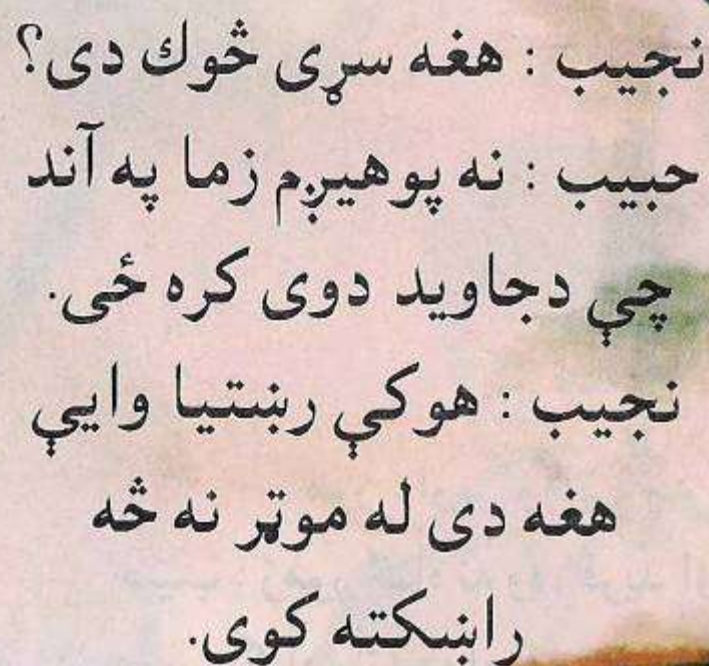 نجيب : هغه سړی څوك دی؟
حبيب : نه پوهيږم زما په آند
چې دجاويد دوی کره ځی.
نجيب : هوکې رښتيا وايې
هغه دی له موټر نه څه
راښکته کوی.